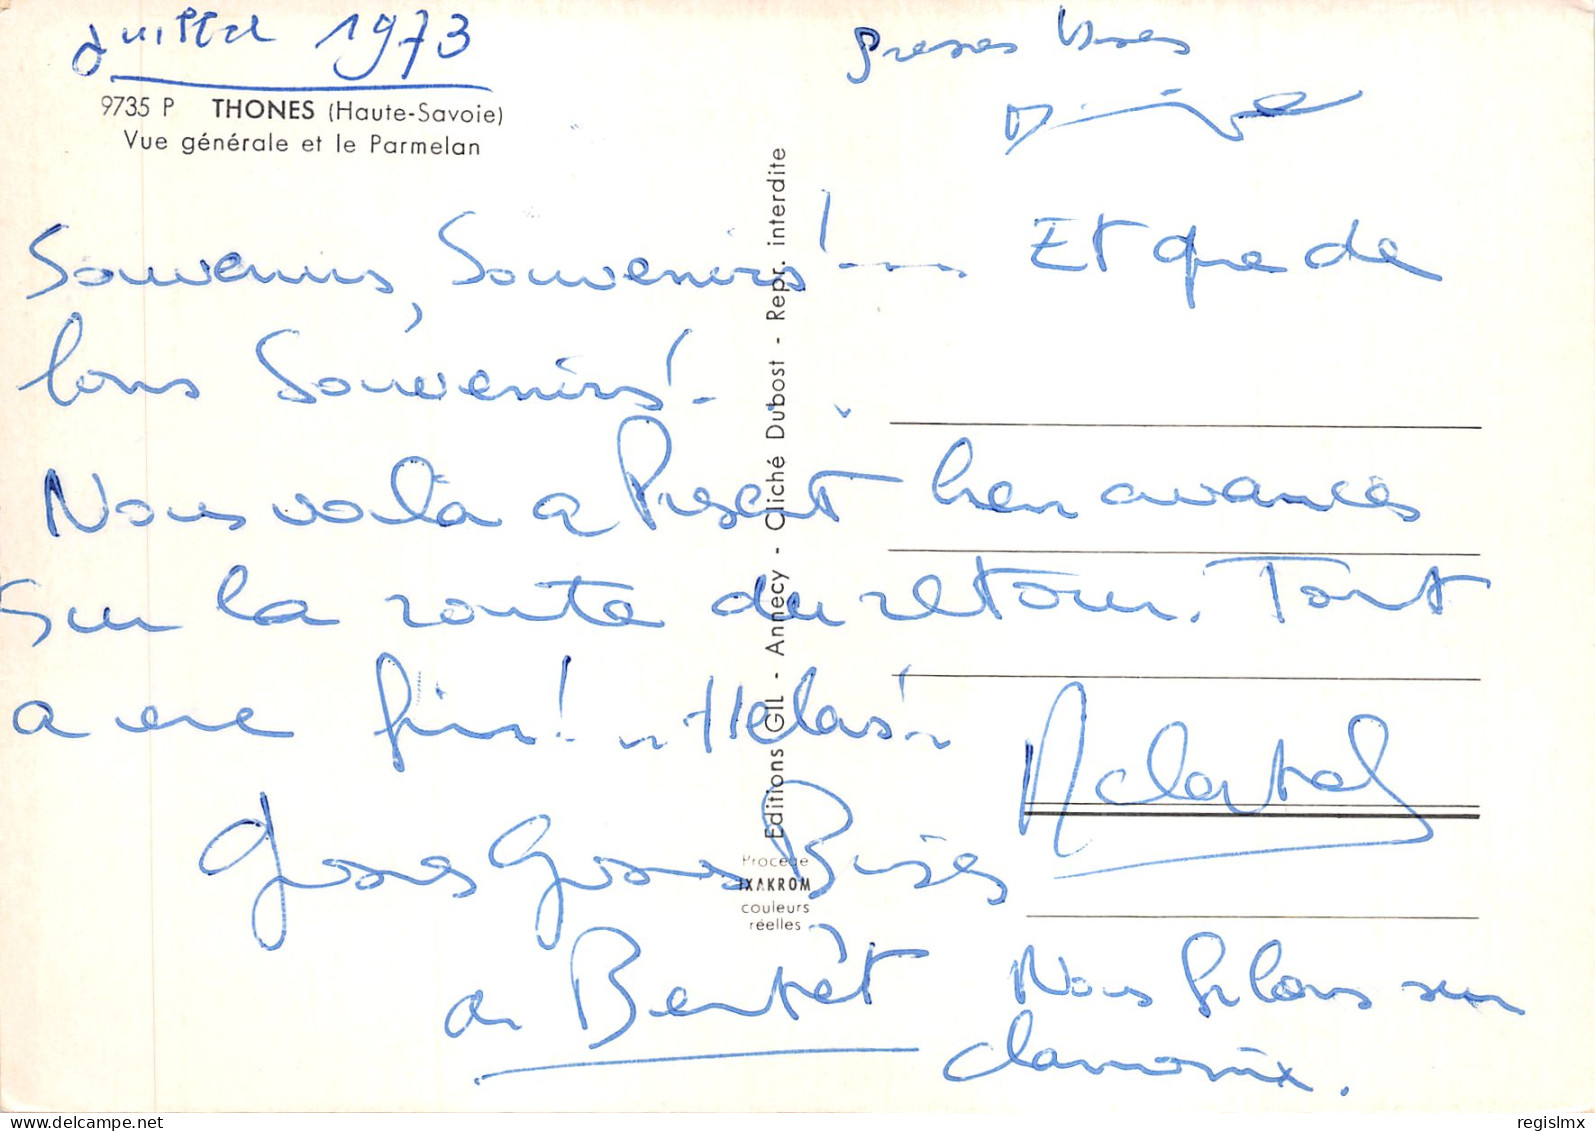 Juillet 1973
9735 P THONES (Haute-Savoie)
Vue générale et le Parmelan
Grosses bises
Souvenirs, Souvenirs!---. Et que de
bons Souvenirs!-
Nous voilà a Present bien avancés
Sur la route du retour. Tout
a une fin! - Helas!-
Grosses Grosses Bises
a Bentôt
Nous filons sur
chamonix.
Editions GIL - Annecy - Cliché Dubost - Repr. interdite
Procédé
IXAKROM
couleurs
réelles
regislmx